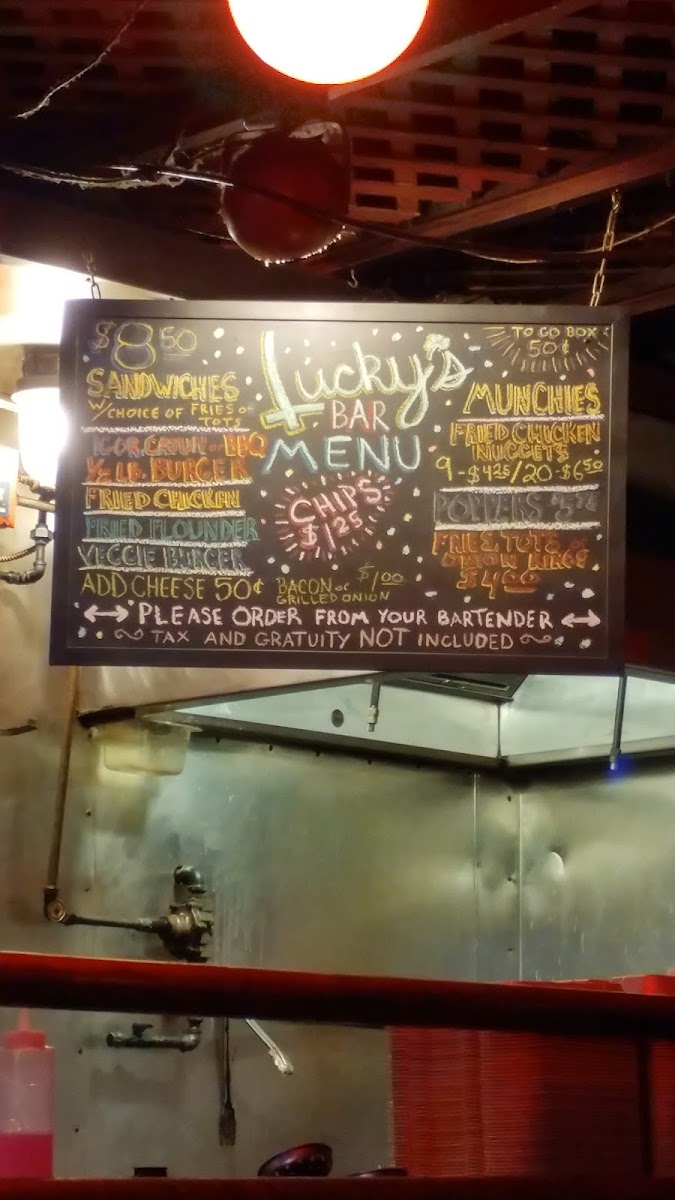 $8.50
SANDWICHES
W/ CHOICE OF FRIES or
TOTS
IGOR, CAJUN or BBQ
1/2 LB. BURGER
FRIED CHICKEN
FRIED FLOUNDER
VEGGIE BURGER
ADD CHEESE 50¢
BACON or $1.00
GRILLED ONION
Lucky's
BAR
MENU
CHIPS
$1.25
TO GO BOX
50¢
MUNCHIES
FRIED CHICKEN
NUGGETS
9 - $4.25 / 20 - $6.50
POPPERS
FRIES, TOTS or
ONION RINGS
$4.00
PLEASE ORDER FROM YOUR BARTENDER
TAX AND GRATUITY NOT INCLUDED